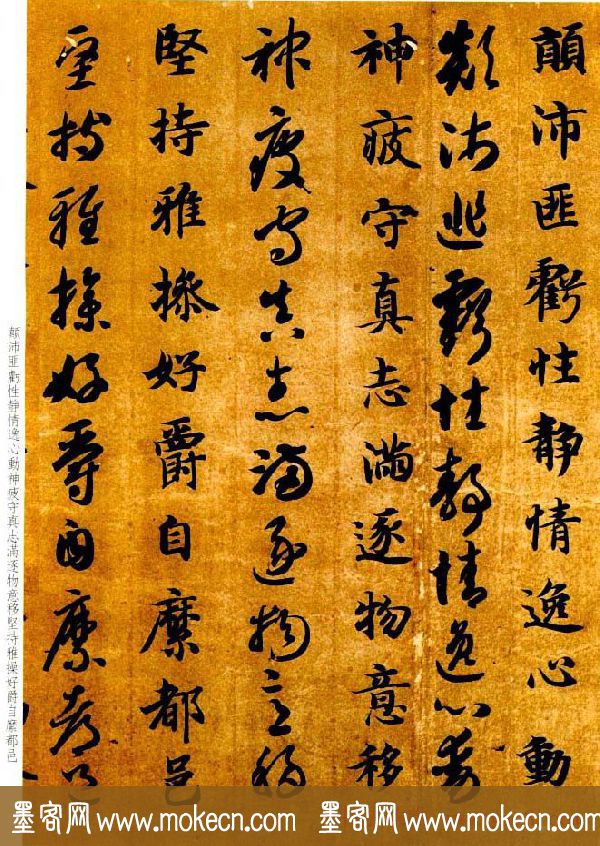 顛沛匪虧性静情逸心動
顛沛匪虧性静情逸心動
神疲守真志滿逐物意移
神疲守真志滿逐物意移
堅持雅操好爵自縻都邑
堅持雅操好爵自縻都邑
顛沛匪虧性靜情逸心動神疲守真志滿逐物意移堅持雅操好爵自縻都邑
墨客网 www.mokecn.com 墨客网 www.mokecn.com